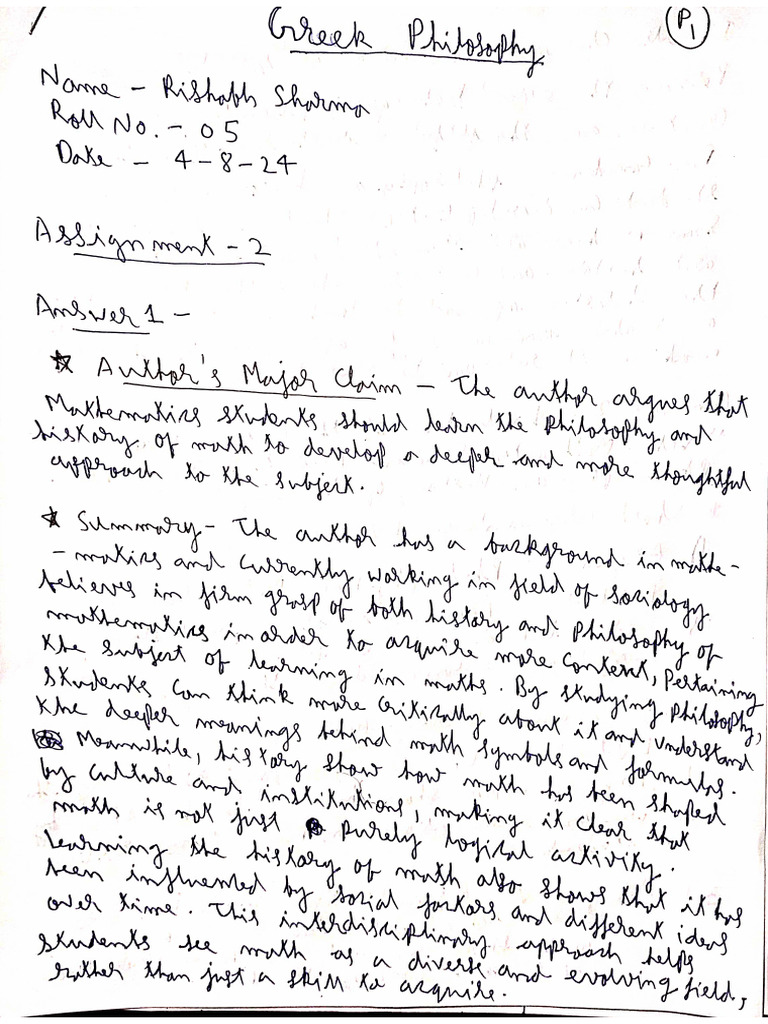 Greek Philosophy
P1
Name - Rishabh Sharma
Roll No. - 05
Date - 4-8-24
Assignment - 2
Answer 1 -
☆ Author's Major Claim - The author argues that
Mathematics students should learn the philosophy and
history of math to develop a deeper and more thoughtful
approach to the subject.
☆ Summary - The author has a background in mathe-
-matics and currently working in field of sociology
believes in firm grasp of both history and philosophy of
mathematics in order to acquire more context, pertaining
the subject of learning in maths. By studying philosophy,
students can think more critically about it and understand
the deeper meanings behind math symbols and formulas.
Meanwhile, history show how math has been shaped
by culture and institutions, making it clear that
math is not just purely logical activity.
Learning the history of math also shows that it has
been influenced by social factors and different ideas
over time. This interdisciplinary approach helps
students see math as a diverse and evolving field,
rather than just a skill to acquire.